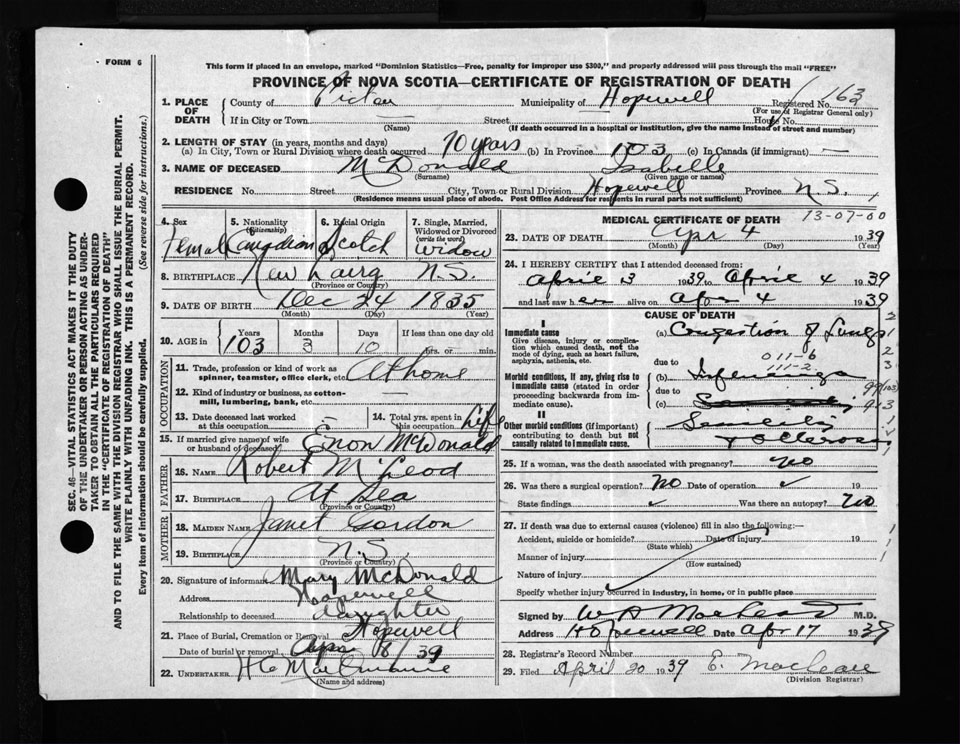 FORM 6
This form if placed in an envelope, marked "Dominion Statistics—Free, penalty for improper use $300," and properly addressed will pass through the mail "FREE"
PROVINCE OF NOVA SCOTIA—CERTIFICATE OF REGISTRATION OF DEATH
1. PLACE OF DEATH County of Pictou Municipality of Hopewell Registered No. 163
(For use of Registrar General only)
If in City or Town — Street House No.
(Name) (If death occurred in a hospital or institution, give the name instead of street and number)
2. LENGTH OF STAY (in years, months and days)
(a) In City, Town or Rural Division where death occurred 70 years (b) In Province 103 (c) In Canada (if immigrant) —
3. NAME OF DECEASED McDonald Isabelle
(Surname) (Given name or names)
RESIDENCE No. Street City, Town or Rural Division Hopewell Province N.S.
(Residence means usual place of abode. Post Office Address for residents in rural parts not sufficient)
SEC. 46—VITAL STATISTICS ACT MAKES IT THE DUTY
OF THE UNDERTAKER OR PERSON ACTING AS UNDER-
TAKER TO OBTAIN ALL THE PARTICULARS REQUIRED
IN THE "CERTIFICATE OF REGISTRATION OF DEATH"
AND TO FILE THE SAME WITH THE DIVISION REGISTRAR WHO SHALL ISSUE THE BURIAL PERMIT.
WRITE PLAINLY WITH UNFADING INK. THIS IS A PERMANENT RECORD.
Every item of information should be carefully supplied. (See reverse side for instructions.)
4. Sex 5. Nationality (Citizenship) 6. Racial Origin 7. Single, Married, Widowed or Divorced (write the word)
Female Canadian Scotch Widow
8. BIRTHPLACE New Lairg N.S.
(Province or Country)
9. DATE OF BIRTH Dec 24 1835
(Month) (Day) (Year)
10. AGE in Years Months Days If less than one day old
103 3 10 hrs. or min.
OCCUPATION
11. Trade, profession or kind of work as spinner, teamster, office clerk, etc. At home
12. Kind of industry or business, as cotton-mill, lumbering, bank, etc. —
13. Date deceased last worked at this occupation — 14. Total yrs. spent in this occupation Life
15. If married give name of wife or husband of deceased Enon McDonald
FATHER
16. NAME Robert McLeod
17. BIRTHPLACE At Sea
(Province or Country)
MOTHER
18. MAIDEN NAME Janet Gordon
19. BIRTHPLACE N.S.
(Province or Country)
20. Signature of informant Mary McDonald
Address Hopewell
Relationship to deceased daughter
21. Place of Burial, Cremation or Removal Hopewell
Date of burial or removal Apr 8/39
22. UNDERTAKER
(Name and address)
MEDICAL CERTIFICATE OF DEATH 13-07-00
23. DATE OF DEATH Apr 4 1939
(Month) (Day) (Year)
24. I HEREBY CERTIFY that I attended deceased from:
April 3 1939, to April 4 1939
and last saw her alive on Apr 4 1939
CAUSE OF DEATH
I
Immediate cause
Give disease, injury or complication which caused death, not the mode of dying, such as heart failure, asphyxia, asthenia, etc.
(a) Congestion of Lungs
due to 011-6
111-2
Morbid conditions, if any, giving rise to immediate cause (stated in order proceeding backwards from immediate cause).
(b) Influenza
due to
(c) Senility
II
Other morbid conditions (if important) contributing to death but not causally related to immediate cause.
Senility
& Sclerosis
25. If a woman, was the death associated with pregnancy? No
26. Was there a surgical operation? No Date of operation
State findings Was there an autopsy? No
27. If death was due to external causes (violence) fill in also the following:—
Accident, suicide or homicide? Date of injury 19
(State which)
Manner of injury
(How sustained)
Nature of injury
Specify whether injury occurred in industry, in home, or in public place
Signed by M.D.
Address Hopewell Date Apr 17 1939
28. Registrar's Record Number
29. Filed April 20 1939 E.
(Division Registrar)